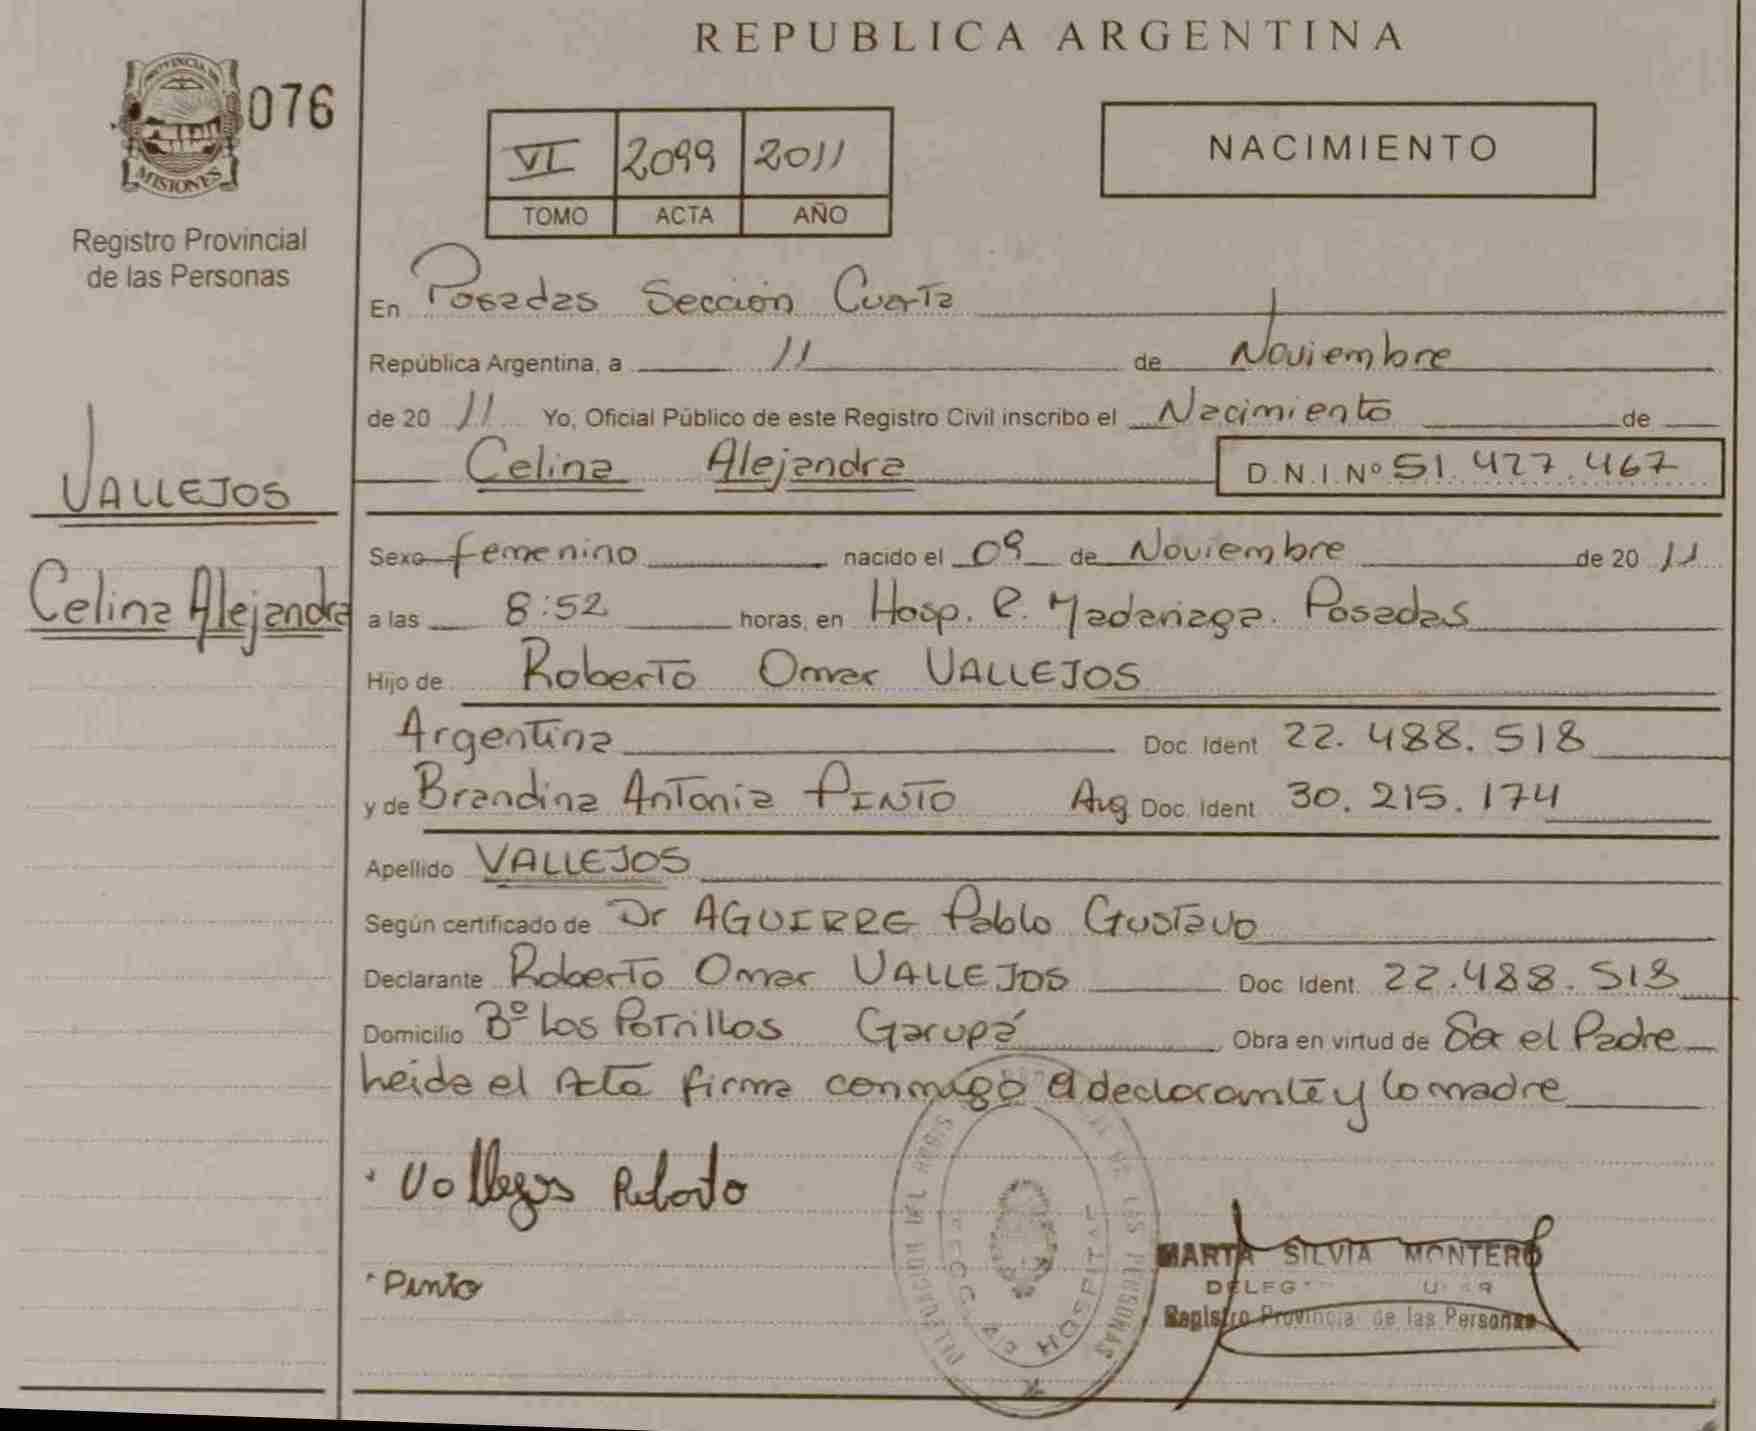 REPUBLICA ARGENTINA
PROVINCIA DE
MISIONES
076
Registro Provincial
de las Personas
VI 2099 2011
TOMO ACTA AÑO
NACIMIENTO
VALLEJOS
Celina Alejandra
En Posadas Sección Cuarta
República Argentina, a 11 de Noviembre
de 20 11 Yo, Oficial Público de este Registro Civil inscribo el Nacimiento de
Celina Alejandra D.N.I.Nº 51.427.467
Sexo femenino nacido el 09 de Noviembre de 20 11
a las 8:52 horas, en Hosp. R. Madariaga. Posadas
Hijo de Roberto Omar VALLEJOS
Argentina Doc. Ident 22.488.518
y de Brandina Antonia PINTO Arg Doc. Ident 30.215.174
Apellido VALLEJOS
Según certificado de Dr AGUIRRE Pablo Gustavo
Declarante Roberto Omar VALLEJOS Doc Ident. 22.488.518
Domicilio Bº Los Potrillos Garupá Obra en virtud de Ser el Padre
heida el Acta firma conmigo el declarante y la madre
Vallejos Roberto
Pinto
HOSPITAL
DE LAS PERSONAS
MARTA SILVIA MONTERO
Registro Provincial de las Personas